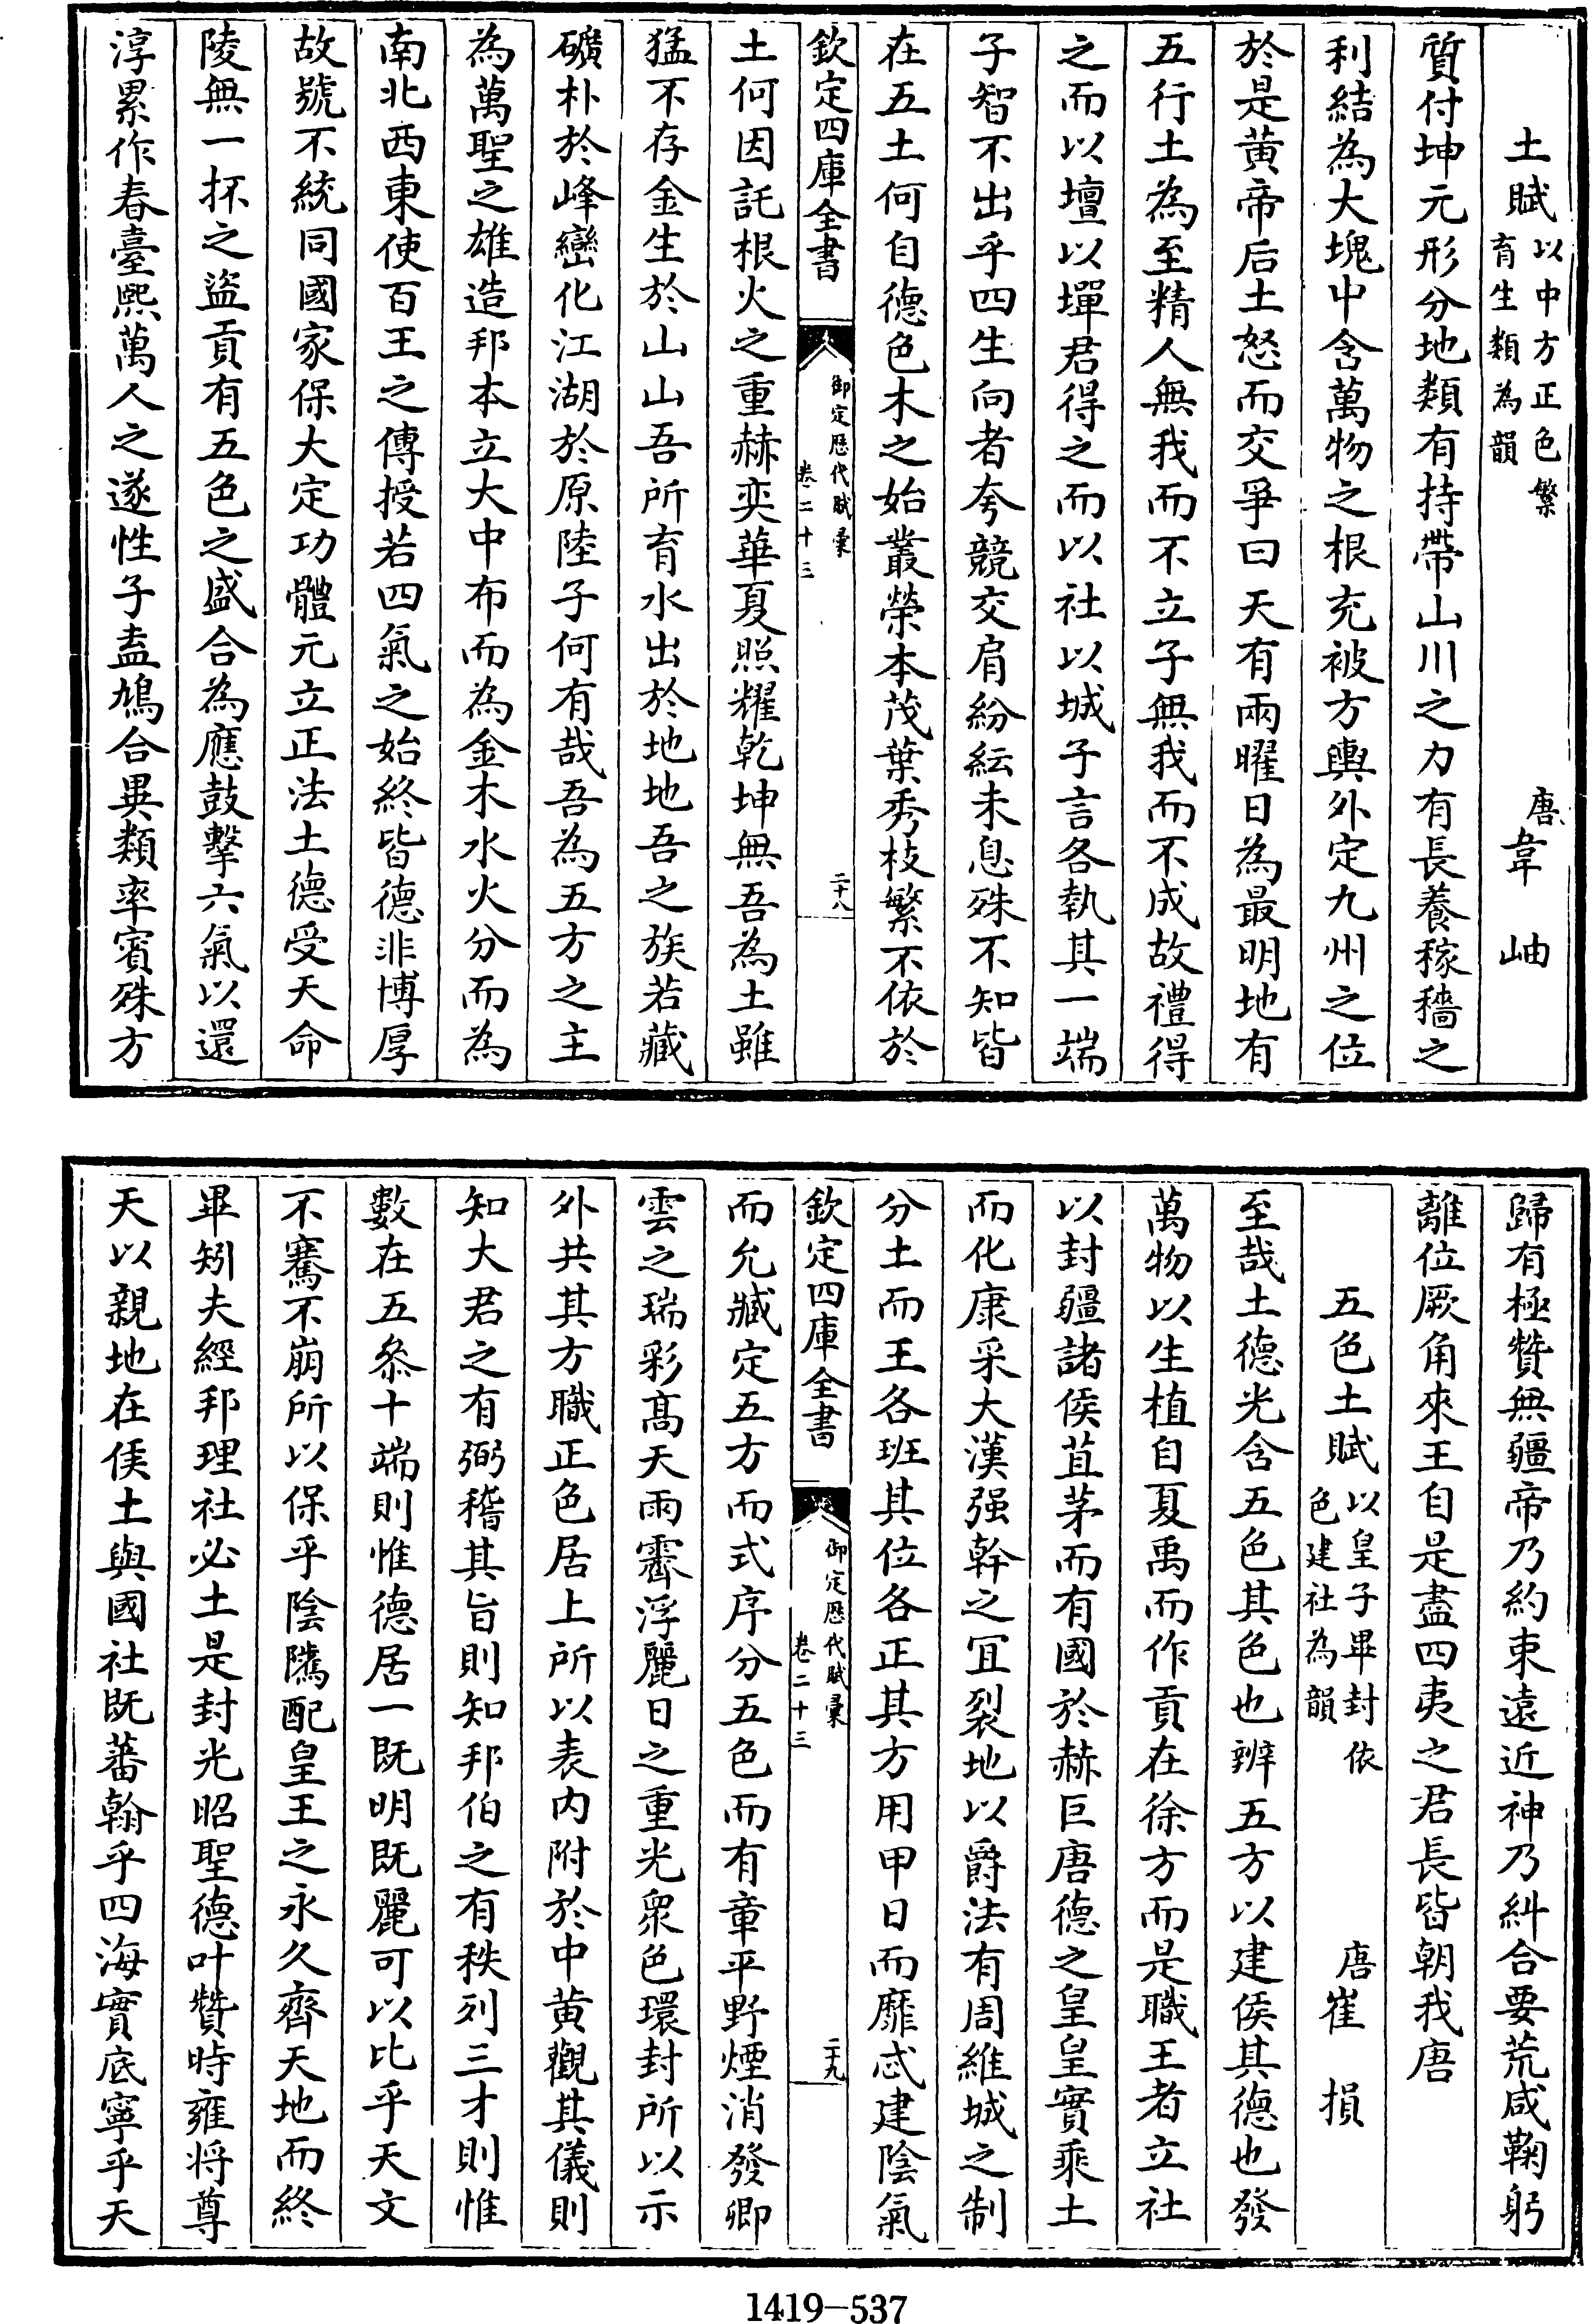 土賦以中方正色繁育生類為韻 唐韋岫
質付坤元形分地類有持帶山川之力有長養稼穡之
利結為大塊中含萬物之根充被方輿外定九州之位
於是黄帝后土怒而交爭曰天有兩曜日為最明地有
五行土為至精人無我而不立子無我而不成故禮得
之而以壇以墠君得之而以社以城子言各執其一端
子智不出乎四生向者夸競交肩紛紜未息殊不知皆
在五土何自德色木之始叢榮本茂葉秀枝繁不依於
欽定四庫全書 御定歴代賦彙 卷二十三 二十八
土何因託根火之重赫奕華夏照耀乾坤無吾為土雖
猛不存金生於山山吾所育水出於地地吾之族若藏
礦朴於峰巒化江湖於原陸子何有哉吾為五方之主
為萬聖之雄造邦本立大中布而為金木水火分而為
南北西東使百王之傳授若四氣之始終皆德非博厚
故號不統同國家保大定功體元立正法土德受天命
陵無一抔之盜貢有五色之盛合為應鼓擊六氣以還
淳累作春臺熙萬人之遂性子盍鳩合異類率賓殊方
歸有極贊無疆帝乃約束遠近神乃糾合要荒咸鞠躬
離位厥角來王自是盡四夷之君長皆朝我唐
五色土賦以皇子畢封依色建社為韻 唐崔損
至哉土德光含五色其色也辨五方以建侯其德也發
萬物以生植自夏禹而作貢在徐方而是職王者立社
以封疆諸侯苴茅而有國於赫巨唐德之皇皇實乘土
而化康采大漢强幹之宜裂地以爵法有周維城之制
分土而王各班其位各正其方用甲日而靡忒建陰氣
欽定四庫全書 御定歴代賦彙 卷二十三 二十九
而允臧定五方而式序分五色而有章平野煙消發卿
雲之瑞彩髙天雨霽浮麗日之重光衆色環封所以示
外共其方職正色居上所以表内附於中黄觀其儀則
知大君之有弼稽其旨則知邦伯之有秩列三才則惟
數在五叅十端則惟德居一既明既麗可以比乎天文
不騫不崩所以保乎陰隲配皇王之永久齊天地而終
畢矧夫經邦理社必土是封光昭聖德叶贊時雍将尊
天以親地在侯土與國社既蕃翰乎四海實底寧乎天
1419-537